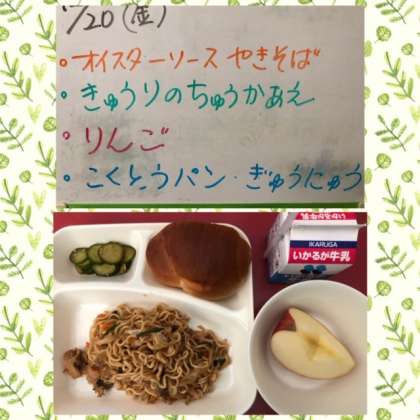 /20(金)
・オイスターソース やきそば
・きゅうりのちゅうかあえ
・りんご
・こくとうパン・ぎゅうにゅう
IKARUGA
いかるが牛乳